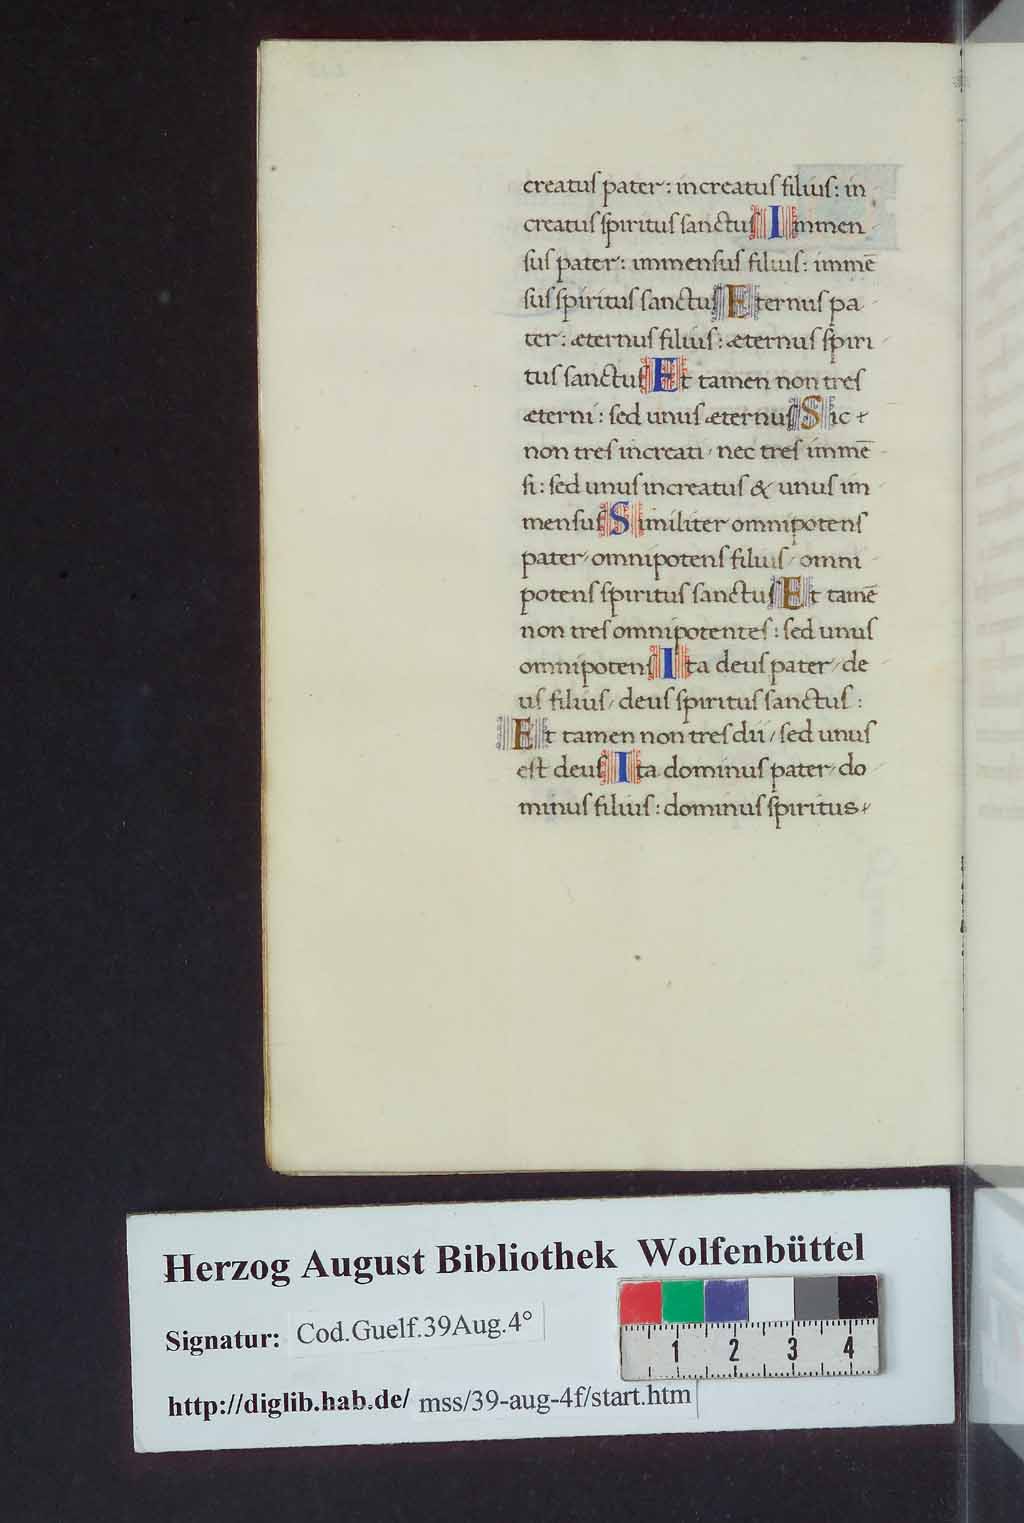 creatus pater: increatus filius: in
creatus spiritus sanctus Immen
sus pater: immensus filius: immē
sus spiritus sanctus Eternus pa
ter: æternus filius: æternus spiri
tus sanctus Et tamen non tres
æterni: sed unus æternus Sic
non tres increati, nec tres immē
si: sed unus increatus & unus im
mensus Similiter omnipotens
pater, omnipotens filius, omni
potens spiritus sanctus Et tamē
non tres omnipotentes: sed unus
omnipotens Ita deus pater, de
us filius, deus spiritus sanctus:
Et tamen non tres dii, sed unus
est deus Ita dominus pater, do
minus filius: dominus spiritus
Herzog August Bibliothek Wolfenbüttel
Signatur: Cod.Guelf.39Aug.4°
http://diglib.hab.de/ mss/39-aug-4f/start.htm
1 2 3 4